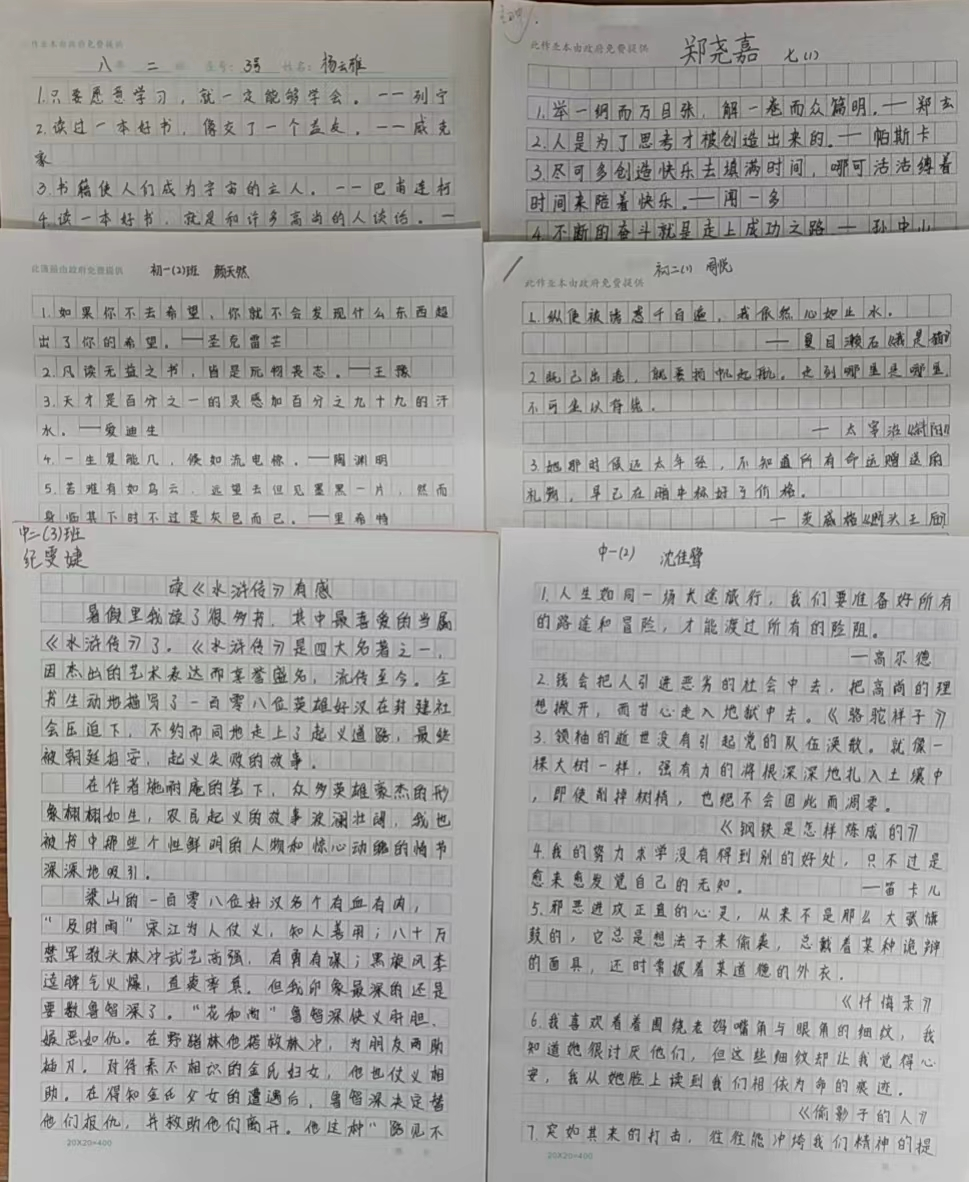 作业本由政府免费提供
八年 二班 座号:3号 姓名:杨云雅
1.只要愿意学习，就一定能够学会。——列宁
2.读过一本好书，像交了一个益友。——臧克
家
3.书籍使人们成为宇宙的主人。——巴甫连柯
4.读一本好书，就是和许多高尚的人谈话。—
此作业本由政府免费提供
郑尧嘉 七(1)
1.举一纲而万目张，解一卷而众篇明。——郑玄
2.人是为了思考才被创造出来的。——帕斯卡
3.尽可多创造快乐去填满时间，哪可活活缚着
时间来陪着快乐。——闻一多
4.不断的奋斗就是走上成功之路——孙中山
此簿册由政府免费提供 初一(2)班 颜天然
1.如果你不去希望，你就不会发现什么东西超
出了你的希望。——圣克雷芒
2.凡读无益之书，皆是玩物丧志。——王豫
3.天才是百分之一的灵感加百分之九十九的汗
水。——爱迪生
4.一生复能几，倏如流电惊。——陶渊明
5.苦难有如乌云，远望去但见墨黑一片，然而
身临其下时不过是灰色而已。——里希特
此作业本由政府免费提供
初二(1) 周悦
1.纵使被诱惑千百遍，我依然心如止水。
——夏目漱石《我是猫》
2.既已出走，就要扬帆起航。走到哪里是哪里，
不可坐以待毙。
——太宰治《斜阳》
3.她那时候还太年轻，不知道所有命运赠送的
礼物，早已在暗中标好了价格。
——茨威格《断头王后》
中二(3)班
纪雯婕
读《水浒传》有感
暑假里我读了很多书，其中最喜爱的当属
《水浒传》了。《水浒传》是四大名著之一，
因杰出的艺术表达而享誉盛名，流传至今。全
书生动地描写了一百零八位英雄好汉在封建社
会压迫下，不约而同地走上了起义道路，最终
被朝廷招安，起义失败的故事。
在作者施耐庵的笔下，众多英雄豪杰的形
象栩栩如生，农民起义的故事波澜壮阔，我也
被书中那些个性鲜明的人物和惊心动魄的情节
深深地吸引。
梁山的一百零八位好汉各个有血有肉，
“及时雨”宋江为人仗义，知人善用；八十万
禁军教头林冲武艺高强，有勇有谋；黑旋风李
逵脾气火爆，直爽率真。但我印象最深的还是
要数鲁智深了。“花和尚”鲁智深侠义肝胆、
嫉恶如仇。在野猪林他搭救林冲，为朋友两肋
插刀。对待素不相识的金氏妇女，他也仗义相
助。在得知金氏父女的遭遇后，鲁智深决定替
他们报仇，并救助他们离开。他这种“路见不
20X20=400
中一(2) 沈佳鹭
1.人生如同一场长途旅行，我们要准备好所有
的路途和冒险，才能渡过所有的险阻。
——高尔德
2.钱会把人引进恶劣的社会中去，把高尚的理
想撇开，而甘心走入地狱中去。《骆驼祥子》
3.领袖的逝世没有引起党的队伍涣散。就像一
棵大树一样，强有力的将根深深地扎入土壤中
，即使削掉树梢，也绝不会因此而凋零。
《钢铁是怎样炼成的》
4.我的努力求学没有得到别的好处，只不过是
愈来愈发觉自己的无知。——笛卡儿
5.邪恶进攻正直的心灵，从来不是那么大张旗
鼓的，它总是想法子来偷袭，总戴着某种诡辩
的面具，还时常披着某道德的外衣。
《忏悔录》
6.我喜欢看着围绕老妈嘴角与眼角的细纹，我
知道她很讨厌他们，但这些细纹却让我觉得心
安，我从她脸上读到我们相依为命的痕迹。
《偷影子的人》
7.突如其来的打击，往往能冲垮我们精神的堤
20X20=400